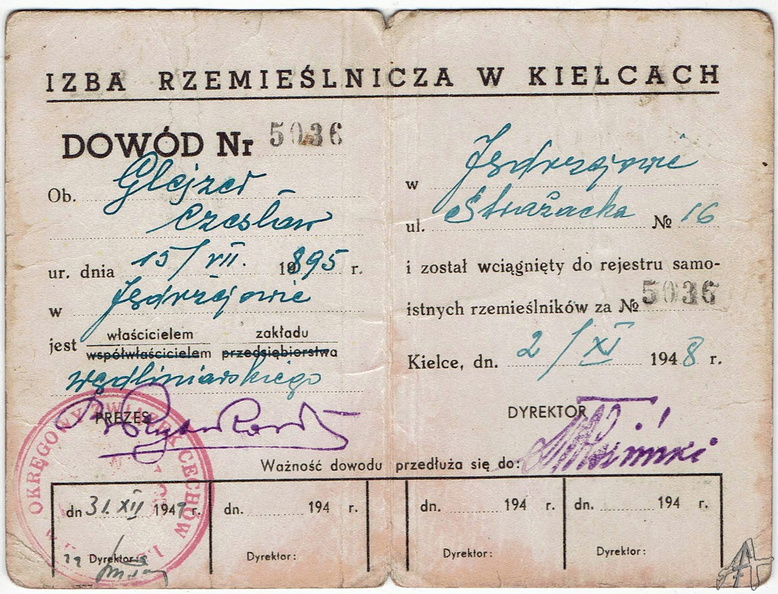 IZBA RZEMIEŚLNICZA W KIELCACH
DOWÓD Nr 5036
Ob. Glejzer
Czesław
ur. dnia 15/VII. 1895 r.
w Jędrzejowie
jest właścicielem zakładu
współwłaścicielem przedsiębiorstwa
wędliniarskiego
PREZES
w Jędrzejowie
ul. Strażacka № 16
i został wciągnięty do rejestru samo-
istnych rzemieślników za № 5036
Kielce, dn. 2/XI 1948 r.
DYREKTOR
Ważność dowodu przedłuża się do:
dn 31.XII 194 r.
Dyrektor:
dn. 194 r.
Dyrektor:
dn. 194 r.
Dyrektor:
dn. 194 r.
Dyrektor:
OKRĘGOWY ZWIĄZEK CECHÓW